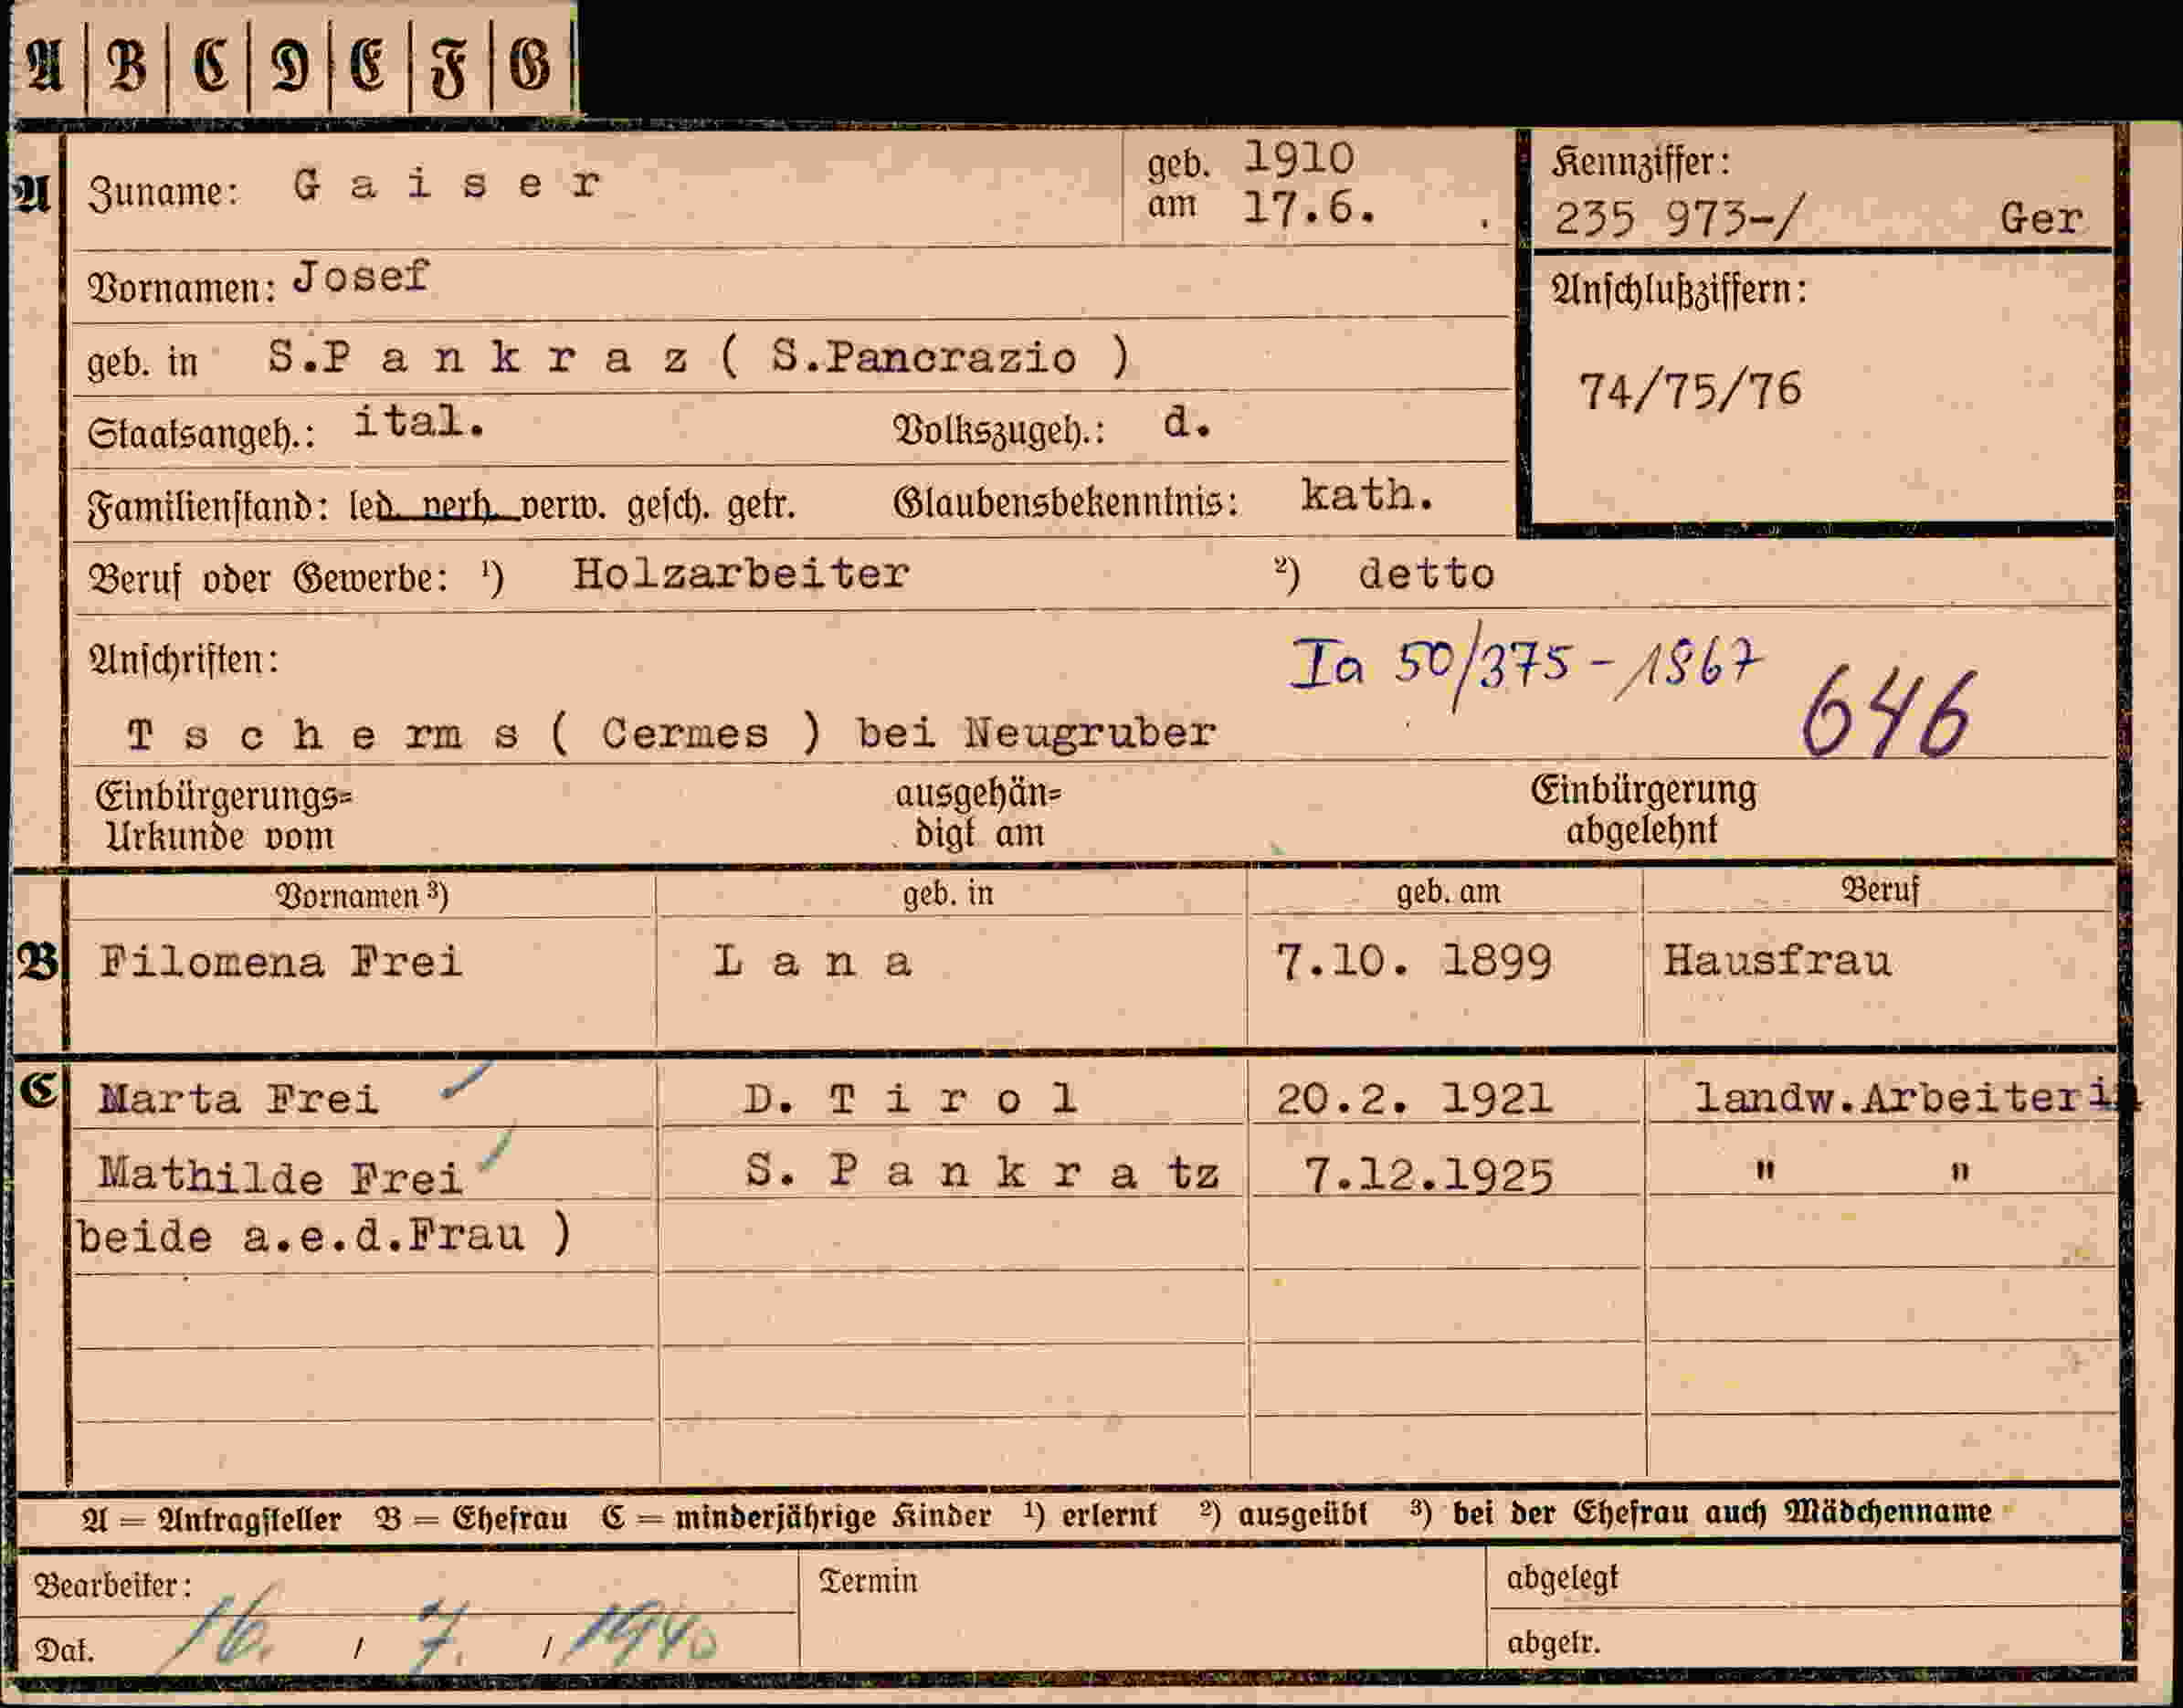 A B C D E F G
A Zuname: G a i s e r geb. 1910
am 17.6. .
Kennziffer:
235 973-/ Ger
Vornamen: Josef
Anschlußziffern:
74/75/76
geb. in S.P a n k r a z ( S.Pancrazio )
Staatsangeh.: ital. Volkszugeh.: d.
Familienstand: led. verh. verw. gesch. getr. Glaubensbekenntnis: kath.
Beruf oder Gewerbe: ¹) Holzarbeiter ²) detto
Anschriften: Ia 50/375 - 1867
646
T s c h e rm s ( Cermes ) bei Neugruber
Einbürgerungs=
Urkunde vom
ausgehän=
digt am
Einbürgerung
abgelehnt
Vornamen ³) geb. in geb. am Beruf
B Filomena Frei L a n a 7.10. 1899 Hausfrau
C Marta Frei D. T i r o l 20.2. 1921 landw.Arbeiterin
Mathilde Frei S. P a n k r a tz 7.12.1925 " "
beide a.e.d.Frau )
A = Antragsteller B = Ehefrau C = minderjährige Kinder ¹) erlernt ²) ausgeübt ³) bei der Ehefrau auch Mädchenname
Bearbeiter: Termin abgelegt
Dat. 16. / 7. / 1940 abgetr.